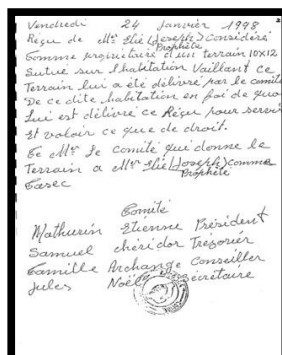 Vendredi 24 Janvier 1998
Reçu de Mr Elié (Joseph) Considéré
Prophète
Comme propriétaire d'un terrain 10x12
Sutué sur l'habitation Vaillant Ce
Terrain lui a été délivré par le comité
De ce dite habitation en foi de quoi
Lui est délivré ce Réçu pour servir
Et valoir ce que de droit.
Ce Mr Le Comité qui donne le
Terrain a Mr Elié (Joseph) comme
Prophète
Casec
Comité
Mathurin Etienne Président
Samuel chéridor Trésorier
Camille Archange Conseiller
Jules Noël secrétaire